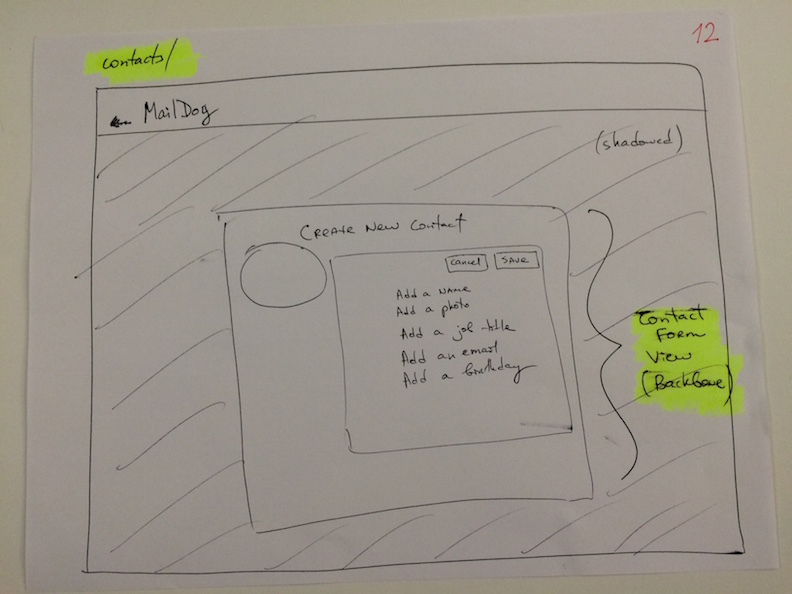 12
contacts/
← MailDog
(shadowed)
Create New Contact
Cancel
SAVE
Add a NAME
Add a photo
Add a job-title
Add an email
Add a birthday
Contact
Form
View
(Backbone)